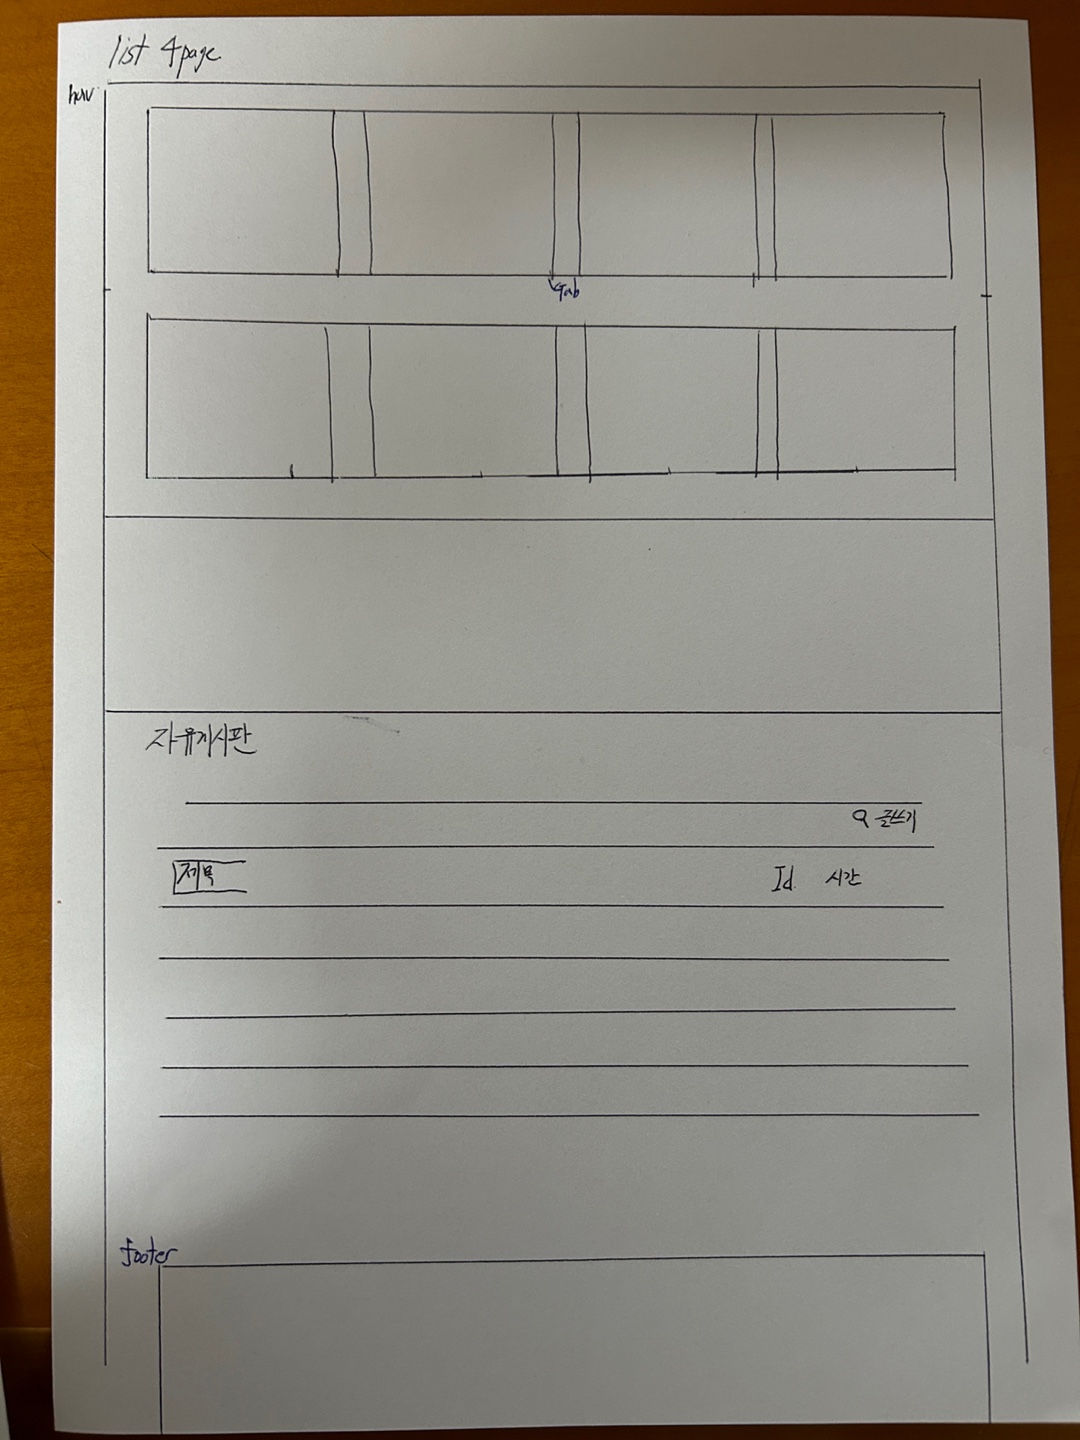 list 4page
Gab
자유게시판
글쓰기
제목 Id 시간
footer